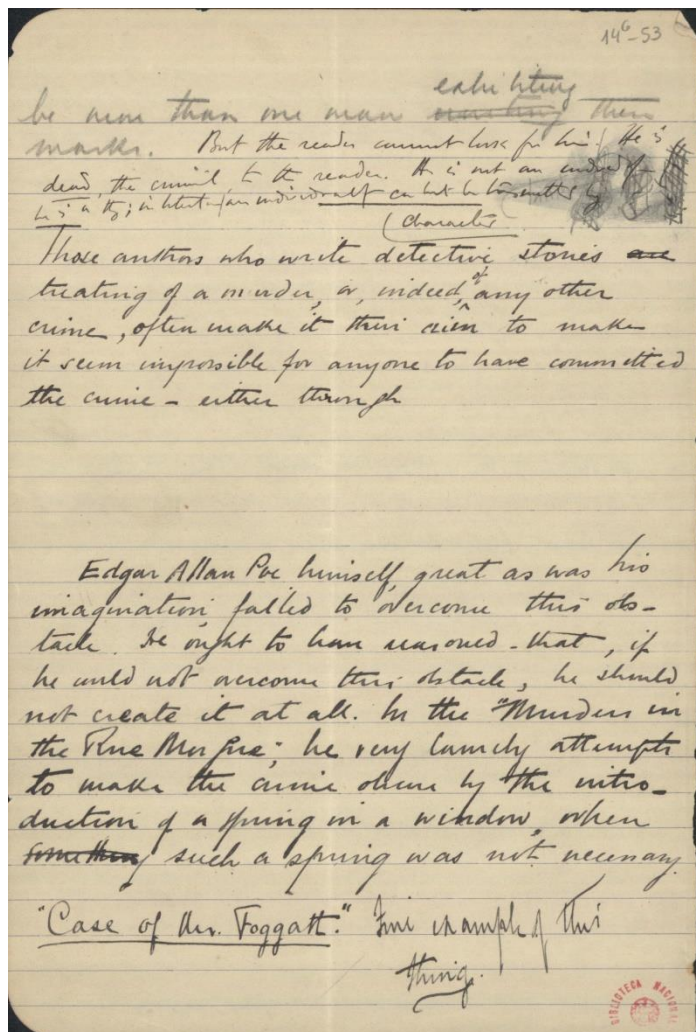 14⁶-53
exhibiting
be more than one man working these
marks. But the reader cannot look for him. He is
dead, the criminal to the reader. He is not an
(an individual can but be by
(character
Those authors who write detective stories are
treating of a murder, or, indeed, of any other
crime, often make it their aim to make
it seem impossible for anyone to have committed
the crime - either through
Edgar Allan Poe himself, great as was his
imagination, failed to overcome this ob-
tacle. He ought to have reasoned - that, if
he could not overcome this obstacle, he should
not create it at all. In the "Murders in
the Rue Morgue", he very lamely attempts
to make the crime obscure by the intro-
duction of a spring in a window, when
something such a spring was not necessary.
"Case of Mr. Foggatt." Fine example of this
thing.
BIBLIOTECA NACIONAL